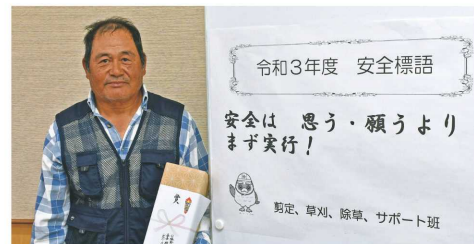 令和3年度 安全標語
安全は 思う・願うより
まず実行!
剪定、草刈、除草、サポート班
賞